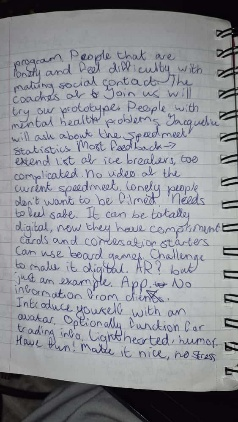 program. People that are
lonely and feel difficulty with
making social contact. The
coaches at & Join us will
try our prototypes People with
mental health problems. Jaqueline
will ask about the Speedmeet
Statistics Most Feedback →
extend list of ice breakers, too
complicated. No video at the
current speedmeet, lonely people
don't want to be filmed. Needs
to feel safe. It can be totally
digital, now they have compliment
cards and conversation starters
Can use board games. Challenge
to make it digital. AR? but
just an example. App. No
information from
Introduce yourself with an
avatar. Optionally function for
trading info. Lighthearted, humor.
Have fun! Make it nice, no stress